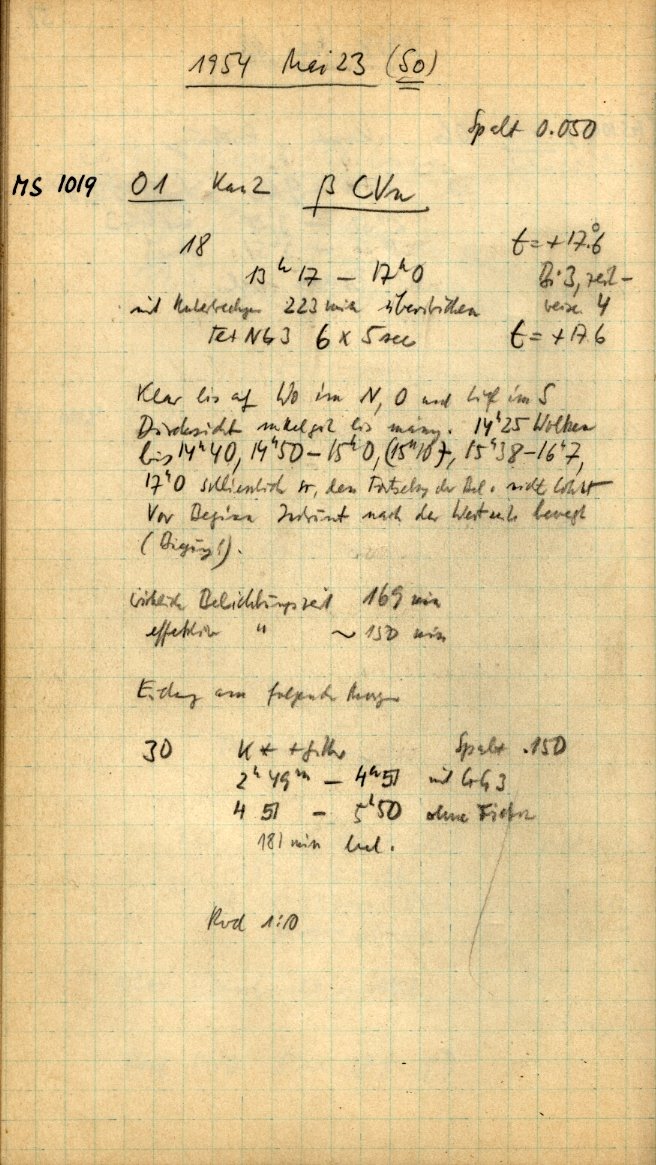 1954 Mai 23 (So)
Spalt 0.050
MS 1019 O1 Kas2 β CVn
18 t = +17°.6
13ʰ17 – 17ʰ0 Bi 3, zeit-
mit Unterbrechgn 223 min überstrichen weise 4
Tet NG 3 6 x 5 sec t = +17.6
Klar bis auf Wo im N, O und tief im S
Durchsicht mittelgut bis mässig. 14ʰ25 Wolken
bis 14ʰ40, 14ʰ50 – 15ʰ0, (15ʰ10), 15ʰ38 – 16ʰ7,
17ʰ0 schliesslich so, dass Fortsetzg der Bel. nicht lohnt
Vor Beginn Instrument nach der Westseite bewegt
wirkliche Belichtungszeit 169 min
effektive " ~ 150 min
Eichg am folgenden Morgen
30 K * + Gitter Spalt .150
2ʰ49ᵐ – 4ʰ51 mit GG 3
4 51 – 5ʰ50 ohne Filter
181 min bel.
Rod 1:10